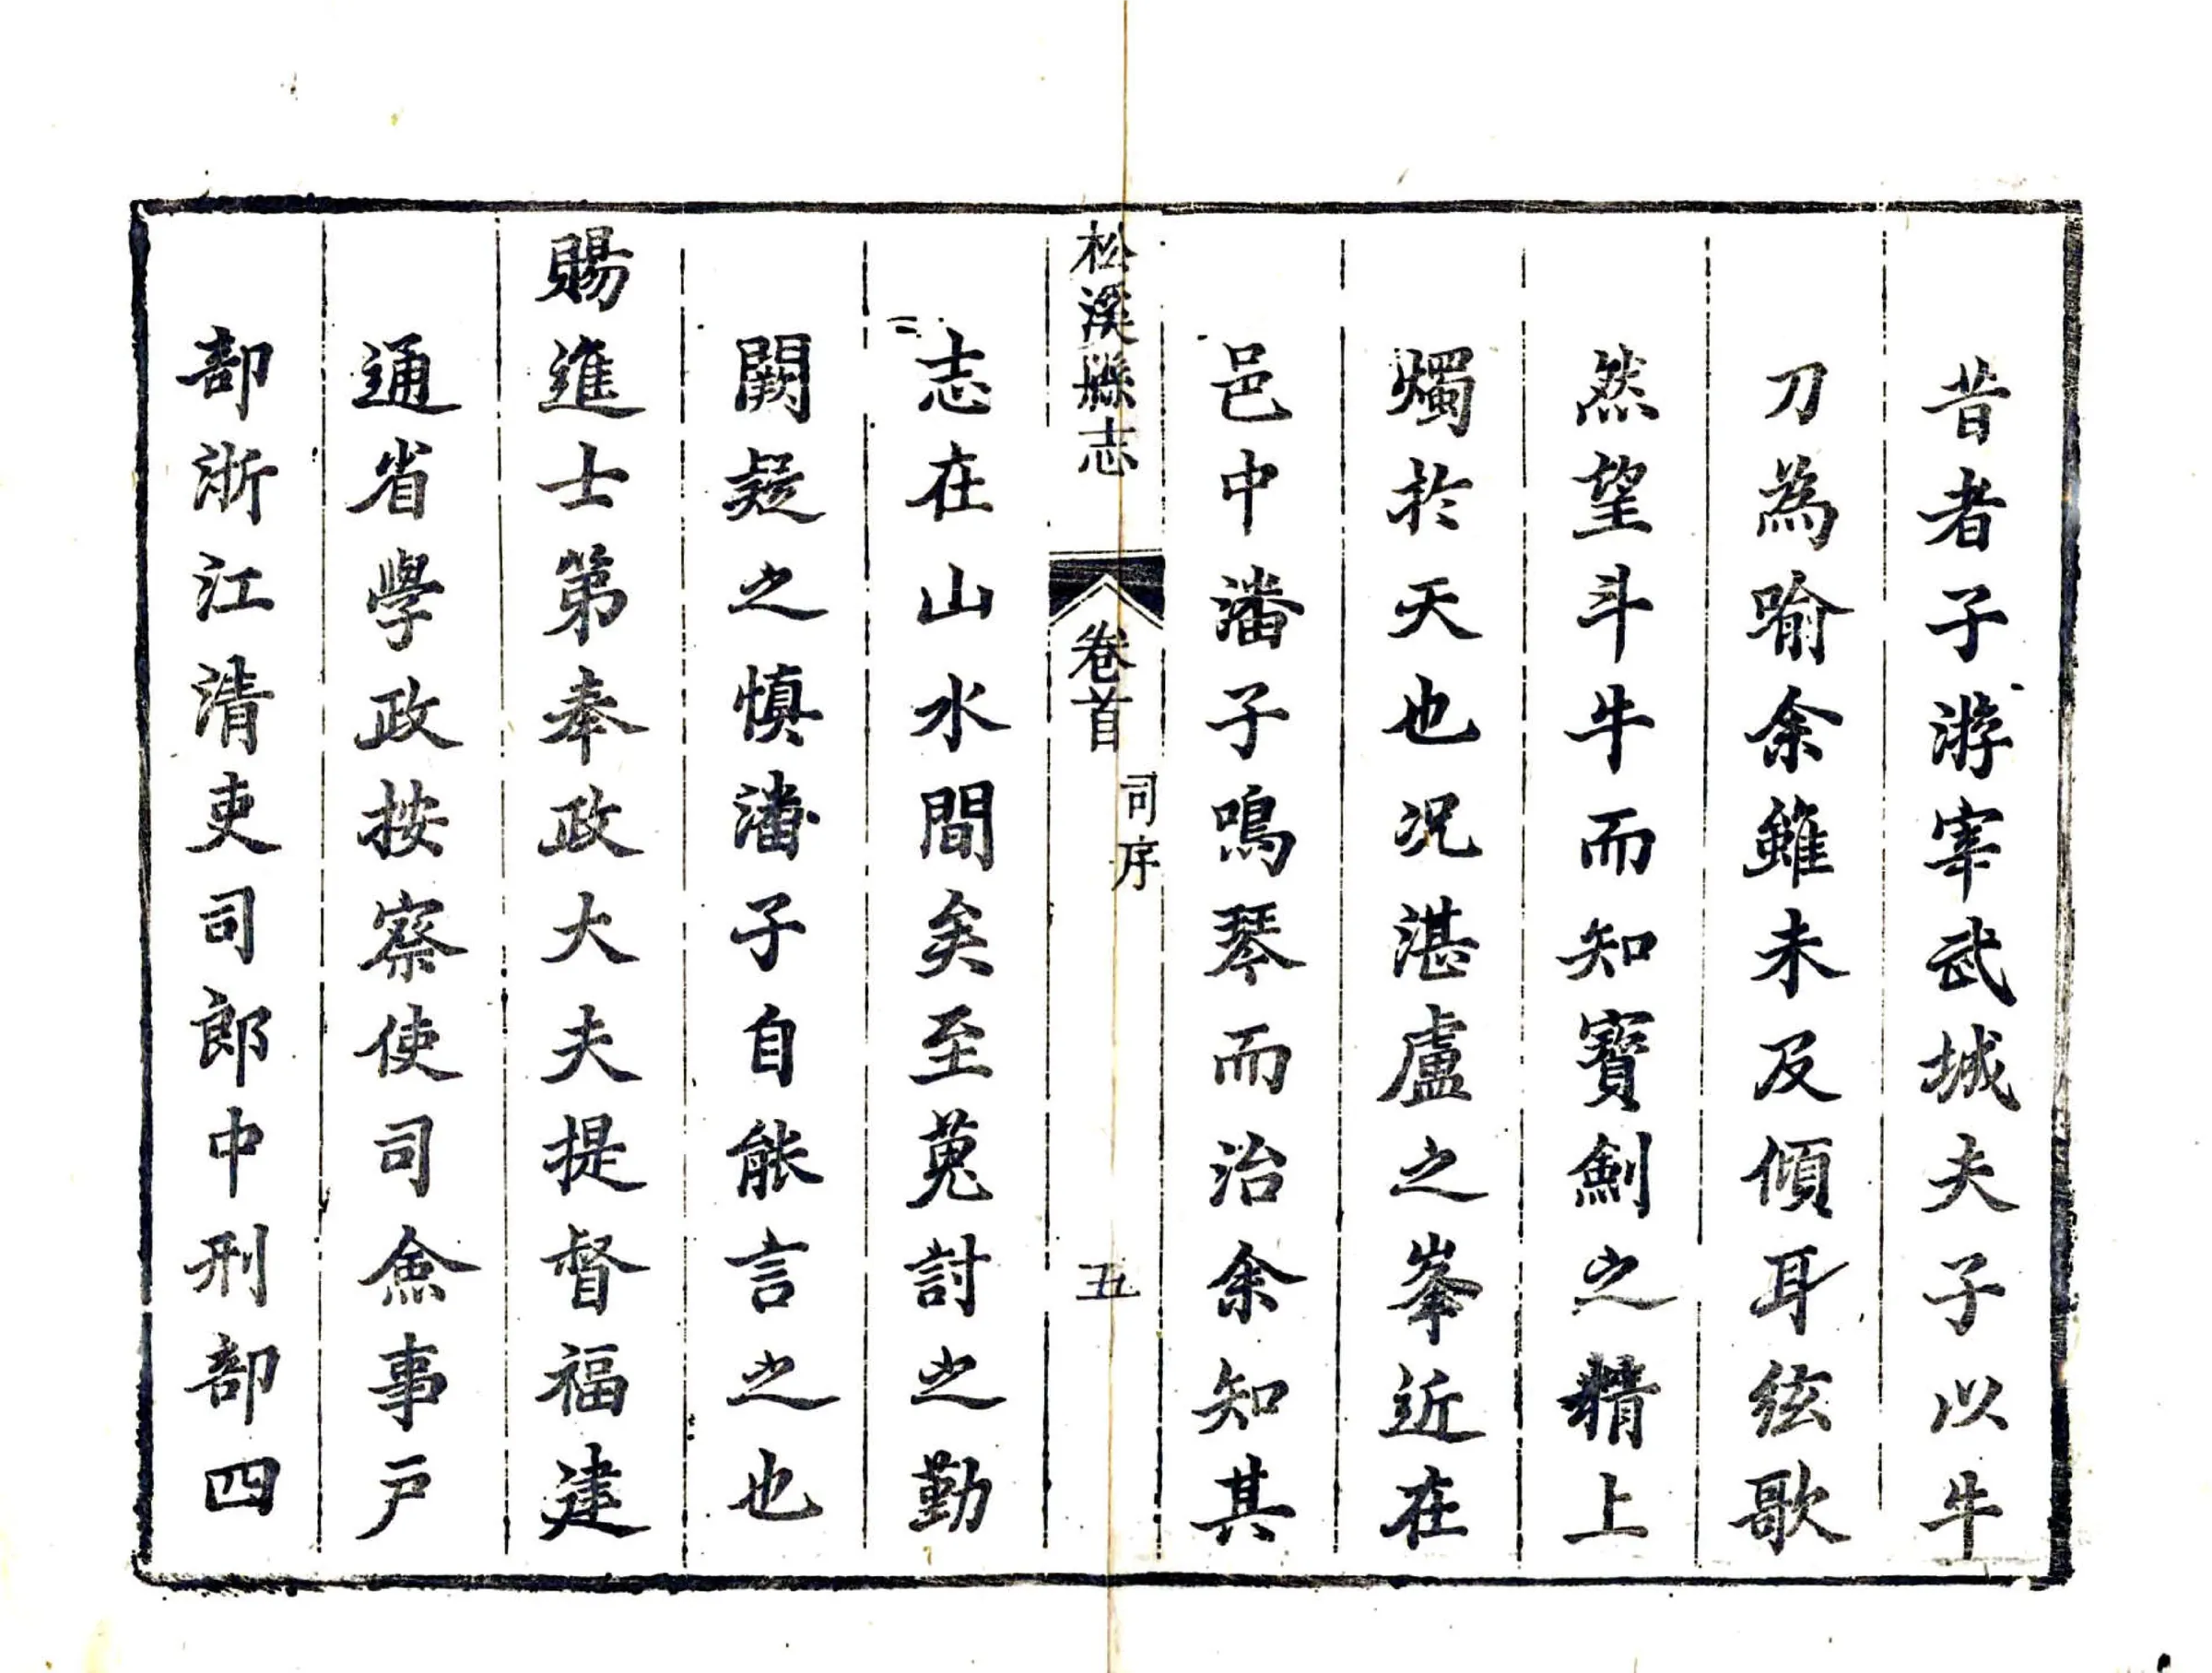 昔者子游宰武城夫子以牛
刀為喻余雖未及傾耳絃歌
然望斗牛而知寶劍之精上
燭於天也况湛盧之峯近在
邑中潘子鳴琴而治余知其
松溪縣志 卷首 司序 五
志在山水間矣至蒐討之勤
闕疑之慎潘子自能言之也
賜進士第奉政大夫提督福建
通省學政按察使司僉事戶
部浙江清吏司郎中刑部四